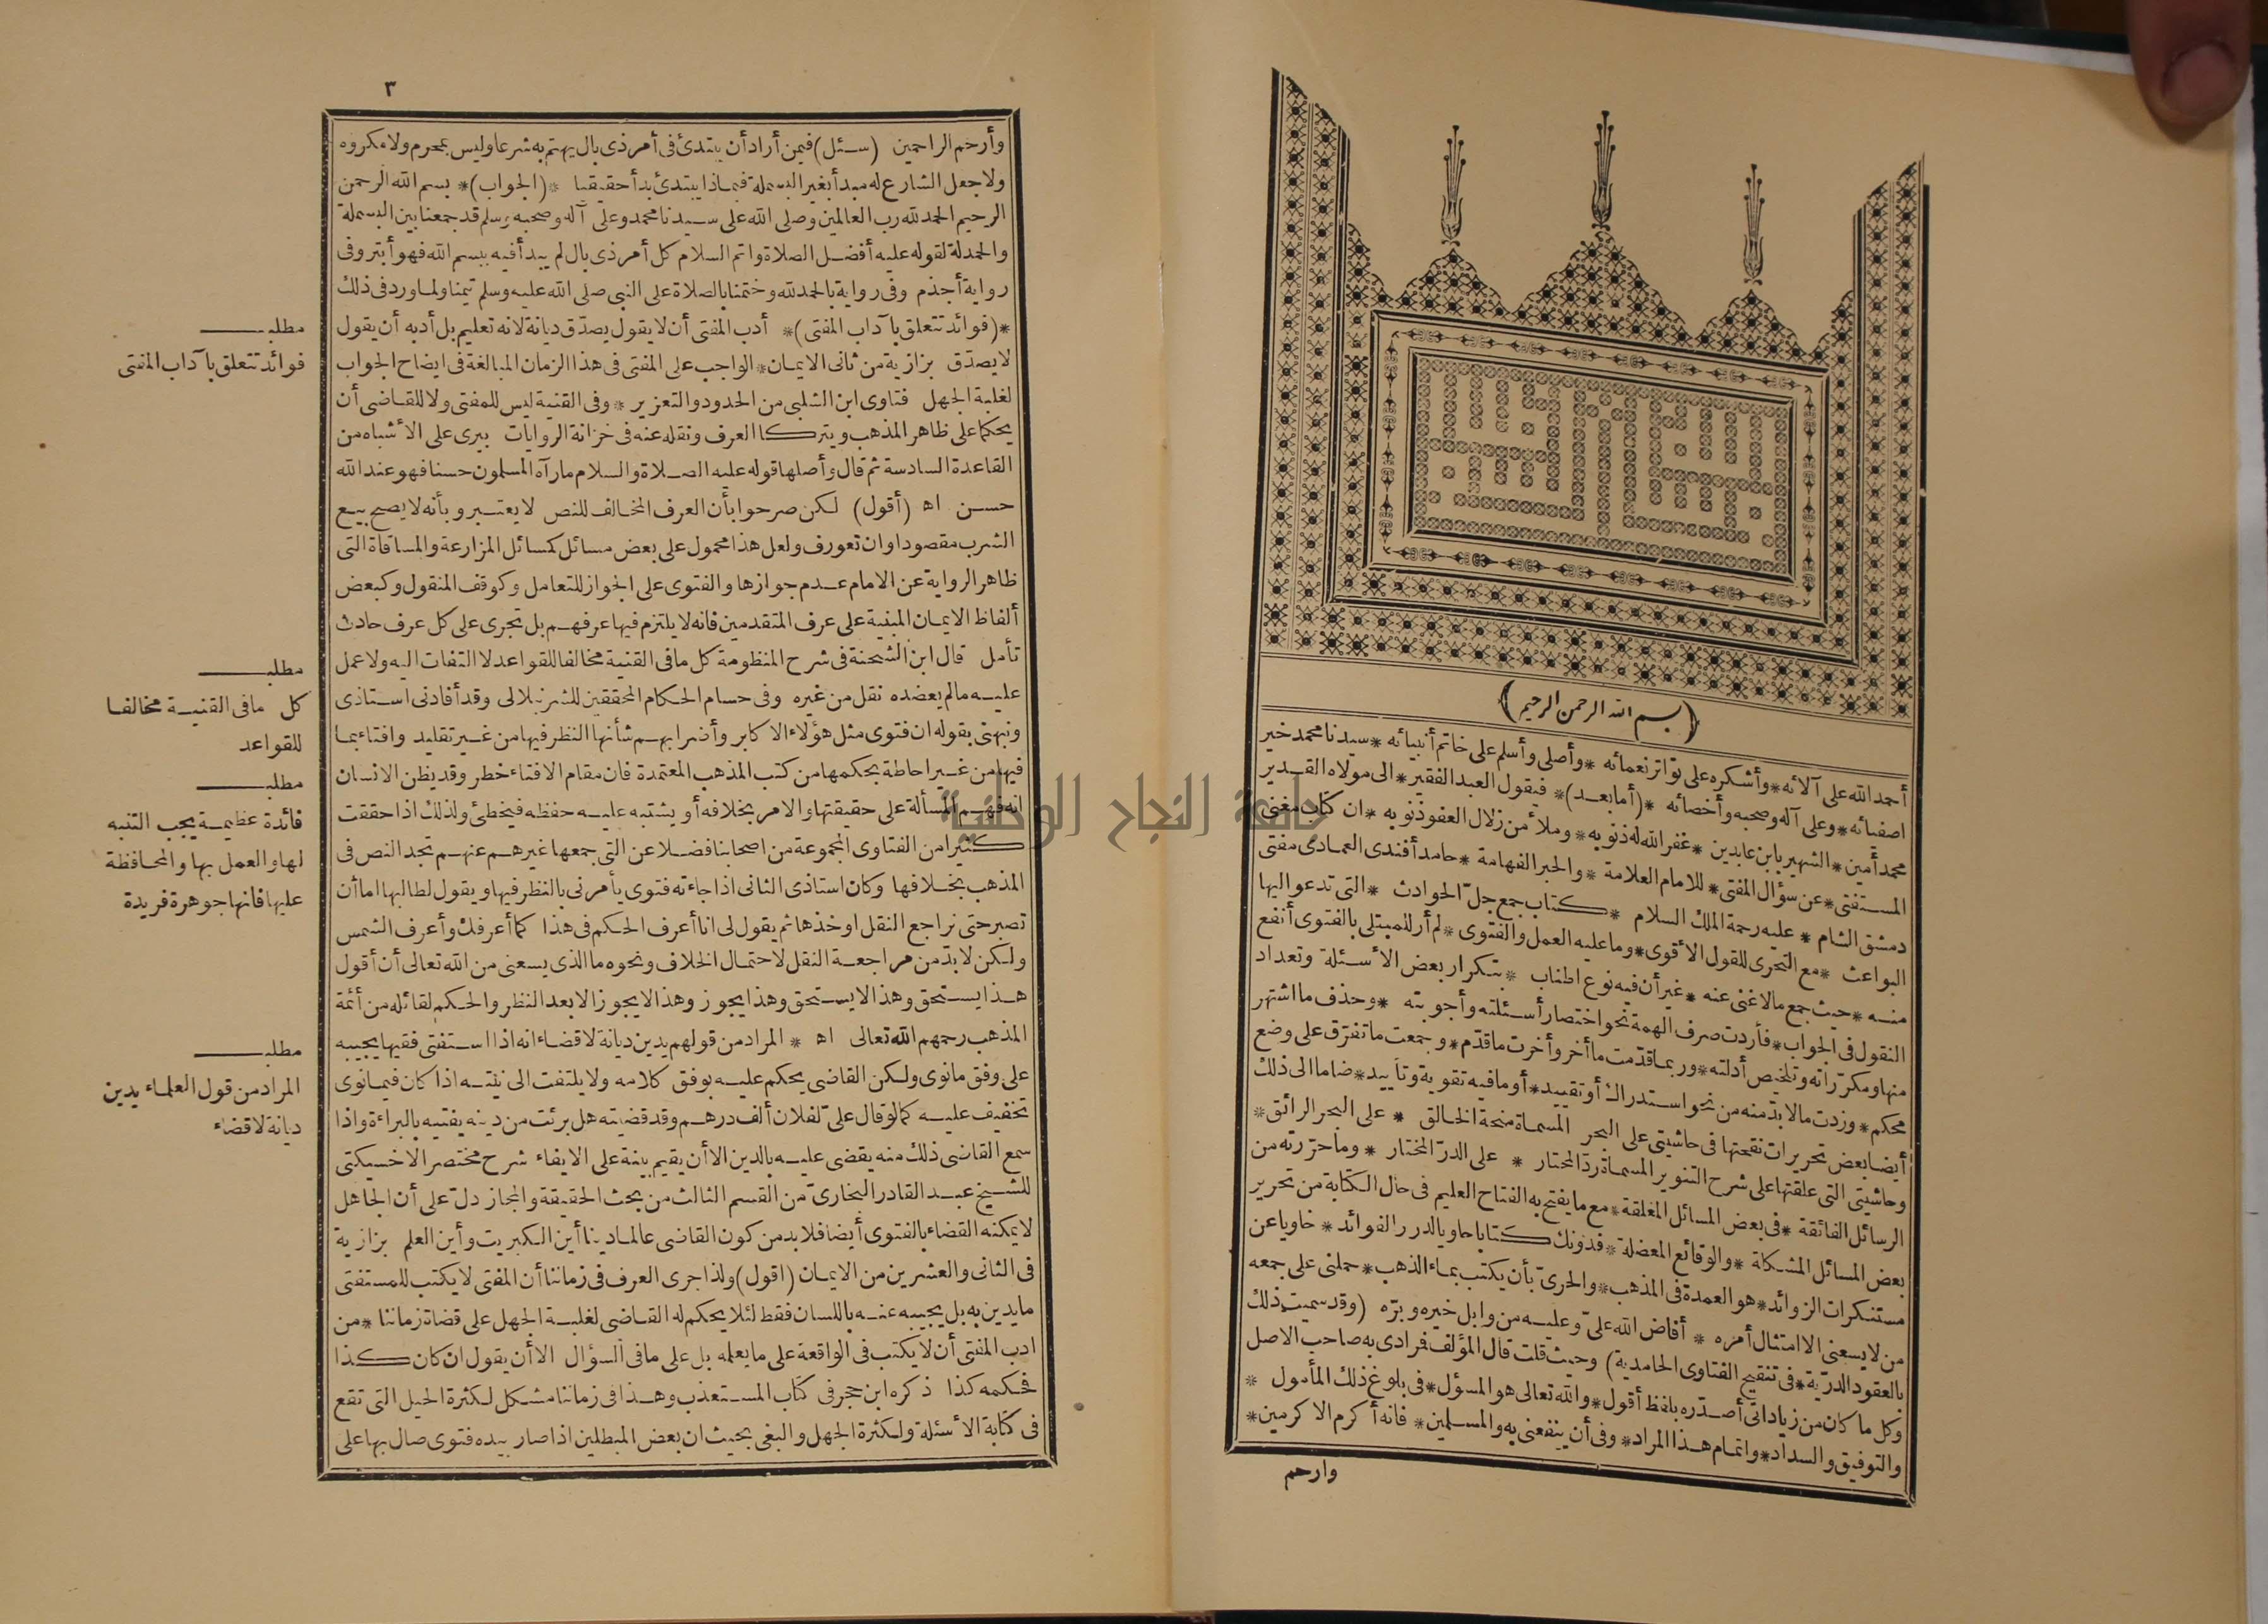 ﴿بسم الله الرحمن الرحيم﴾
أحمد الله على آلائه * وأشكره على تواتر نعمائه * وأصلى وأسلم على خاتم أنبيائه * سيدنا محمد خير
اصفيائه * وعلى آله وصحبه وأخصائه * (أما بعد) * فيقول العبد الفقير * الى مولاه القدير
محمد أمين * الشهير بابن عابدين * غفر الله له ذنوبه * وملأ من زلال العفو ذنوبه * ان كتاب مغنى
المستفتى * عن سؤال المفتى * للامام العلامة * والحبر الفهامة * حامد أفندى العمادى مفتى
دمشق الشام * عليه رحمة الملك السلام * كتاب جمع جل الحوادث * التى تدعو اليها
البواعث * مع التحرى للقول الأقوى * وما عليه العمل والفتوى * لم أر للمبتلى بالفتوى أنفع
منه * حيث جمع مالا غنى عنه * غير أن فيه نوع اطناب * بتكرار بعض الأسئلة وتعداد
النقول فى الجواب * فأردت صرف الهمة نحو اختصار أسئلته وأجوبته * وحذف ما اشتهر
منها ومكرراته وتلخيص أدلته * وربما قدمت ما أخر وأخرت ما قدم * وجمعت ما تفرق على وضع
محكم * وزدت مالا بد منه من نحو استدراك أو تقييد * أو ما فيه تقوية وتأييد * ضاما الى ذلك
أيضا بعض تحريرات نقحتها فى حاشيتى على البحر المسماة منحة الخالق * على البحر الرائق *
وحاشيتى التى علقتها على شرح التنوير المسماة رد المحتار * على الدر المختار * وما حررته من
الرسائل الفائقة * فى بعض المسائل المغلقة * مع ما يفتح به الفتاح العليم فى حال الكتابة من تحرير
بعض المسائل المشكلة * والوقائع المعضلة * فدونك كتابا حاويا لدرر الفوائد * خاويا عن
مستنكرات الزوائد * هو العمدة فى المذهب * والحرى بأن يكتب بماء الذهب * حملنى على جمعه
من لا يسعنى الا امتثال أمره * أفاض الله على وعليه من وابل خيره وبره (وقد سميت ذلك
بالعقود الدرية * فى تنقيح الفتاوى الحامدية) وحيث قلت قال المؤلف فرادى به صاحب الاصل
وكل ما كان من زياداتى أصدره بلفظ أقول * والله تعالى هو المسؤل * فى بلوغ ذلك المأمول *
والتوفيق والسداد * واتمام هذا المراد * وفى أن ينفعنى به والمسلمين * فانه أكرم الاكرمين *
وارحم
٣
وأرحم الراحمين (سئل) فيمن أراد أن يبتدئ فى أمر ذى بال يهتم به شرعا وليس بمحرم ولا مكروه
ولا جعل الشارع له مبدأ بغير البسملة فبماذا يبتدئ بدأ حقيقيا * (الجواب) * بسم الله الرحمن
الرحيم الحمد لله رب العالمين وصلى الله على سيدنا محمد وعلى آله وصحبه وسلم قد جمعنا بين البسملة
والحمدلة لقوله عليه أفضل الصلاة واتم السلام كل أمر ذى بال لم يبدأ فيه ببسم الله فهو أبتر وفى
رواية أجذم وفى رواية بالحمد لله وختمنا بالصلاة على النبى صلى الله عليه وسلم تيمنا ولما ورد فى ذلك
* (فوائد تتعلق بآداب المفتى) * أدب المفتى أن لا يقول يصدق ديانة لانه تعليم بل أدبه أن يقول
لا يصدق بزازية من ثانى الايمان * الواجب على المفتى فى هذا الزمان المبالغة فى ايضاح الجواب
لغلبة الجهل فتاوى ابن الشلبى من الحدود والتعزير * وفى القنية ليس للمفتى ولا للقاضى أن
يحكما على ظاهر المذهب ويتركا العرف ونقله عنه فى خزانة الروايات بيرى على الأشباه من
القاعدة السادسة ثم قال وأصلها قوله عليه الصلاة والسلام ما رآه المسلمون حسنا فهو عند الله
حسن اه (أقول) لكن صرحوا بأن العرف المخالف للنص لا يعتبر وبأنه لا يصح بيع
الشرب مقصودا وان تعورف ولعل هذا محمول على بعض مسائل كمسائل المزارعة والمساقاة التى
ظاهر الرواية عن الامام عدم جوازها والفتوى على الجواز للتعامل وكوقف المنقول وكبعض
ألفاظ الايمان المبنية على عرف المتقدمين فانه لا يلتزم فيها عرفهم بل تجرى على كل عرف حادث
تأمل قال ابن الشحنة فى شرح المنظومة كل ما فى القنية مخالفا للقواعد لا التفات اليه ولا عمل
عليه ما لم يعضده نقل من غيره وفى حسام الحكام المحققين للشرنبلالى وقد أفادنى استاذى
ونبهنى بقوله ان فتوى مثل هؤلاء الاكابر وأضرابهم شأنها النظر فيها من غير تقليد وافتاء بما
فيها من غير احاطة بحكمها من كتب المذهب المعتمدة فان مقام الافتاء خطر وقد يظن الانسان
انه فهم المسألة على حقيقتها والامر بخلافه أو يشتبه عليه حفظه فيخطئ ولذلك اذا حققت
كثيرا من الفتاوى المجموعة من اصحابنا فضلا عن التى جمعها غيرهم عنهم تجد النص فى
المذهب بخلافها وكان استاذى الثانى اذا جاءته فتوى يأمرنى بالنظر فيها ويقول لطالبها اما أن
تصبر حتى نراجع النقل او خذها ثم يقول لى انا أعرف الحكم فى هذا كما أعرفك وأعرف الشمس
ولكن لا بد من مراجعة النقل لاحتمال الخلاف ونحوه ما الذى يسعنى من الله تعالى أن أقول
هذا يستحق وهذا لا يستحق وهذا يجوز وهذا لا يجوز الا بعد النظر والحكم لقائله من أئمة
المذهب رحمهم الله تعالى اه * المراد من قولهم يدين ديانة لا قضاء انه اذا استفتى فقيها يجيبه
على وفق ما نوى ولكن القاضى يحكم عليه بوفق كلامه ولا يلتفت الى نيته اذا كان فيما نوى
تخفيف عليه كما لو قال على لفلان ألف درهم وقد قضيته هل برئت من دينه يفتيه بالبراءة واذا
سمع القاضى ذلك منه يقضى عليه بالدين الا أن يقيم بينة على الايفاء شرح مختصر الاخسيكتى
للشيخ عبد القادر البخارى من القسم الثالث من بحث الحقيقة والمجاز دل على أن الجاهل
لا يمكنه القضاء بالفتوى أيضا فلا بد من كون القاضى عالما دينا أين الكبريت وأين العلم بزازية
فى الثانى والعشرين من الايمان (اقول) ولذا جرى العرف فى زماننا أن المفتى لا يكتب للمستفتى
ما يدين به بل يجيبه عنه باللسان فقط لئلا يحكم له القاضى لغلبة الجهل على قضاة زماننا * من
ادب المفتى أن لا يكتب فى الواقعة على ما يعلمه بل على ما فى السؤال الا أن يقول ان كان كذا
فحكمه كذا ذكره ابن حجر فى كتاب المستعذب وهذا فى زماننا مشكل لكثرة الحيل التى تقع
فى كتابة الأسئلة ولكثرة الجهل والبغى بحيث ان بعض المبطلين اذا صار بيده فتوى صال بها على
مطلب
فوائد تتعلق بآداب المفتى
مطلب
كل ما فى القنية مخالفا
للقواعد
مطلب
فائدة عظيمة يجب التنبه
لها والعمل بها والمحافظة
عليها فانها جوهرة فريدة
مطلب
المراد من قول العلماء يدين
ديانة لا قضاء
جامعة النجاح الوطنية